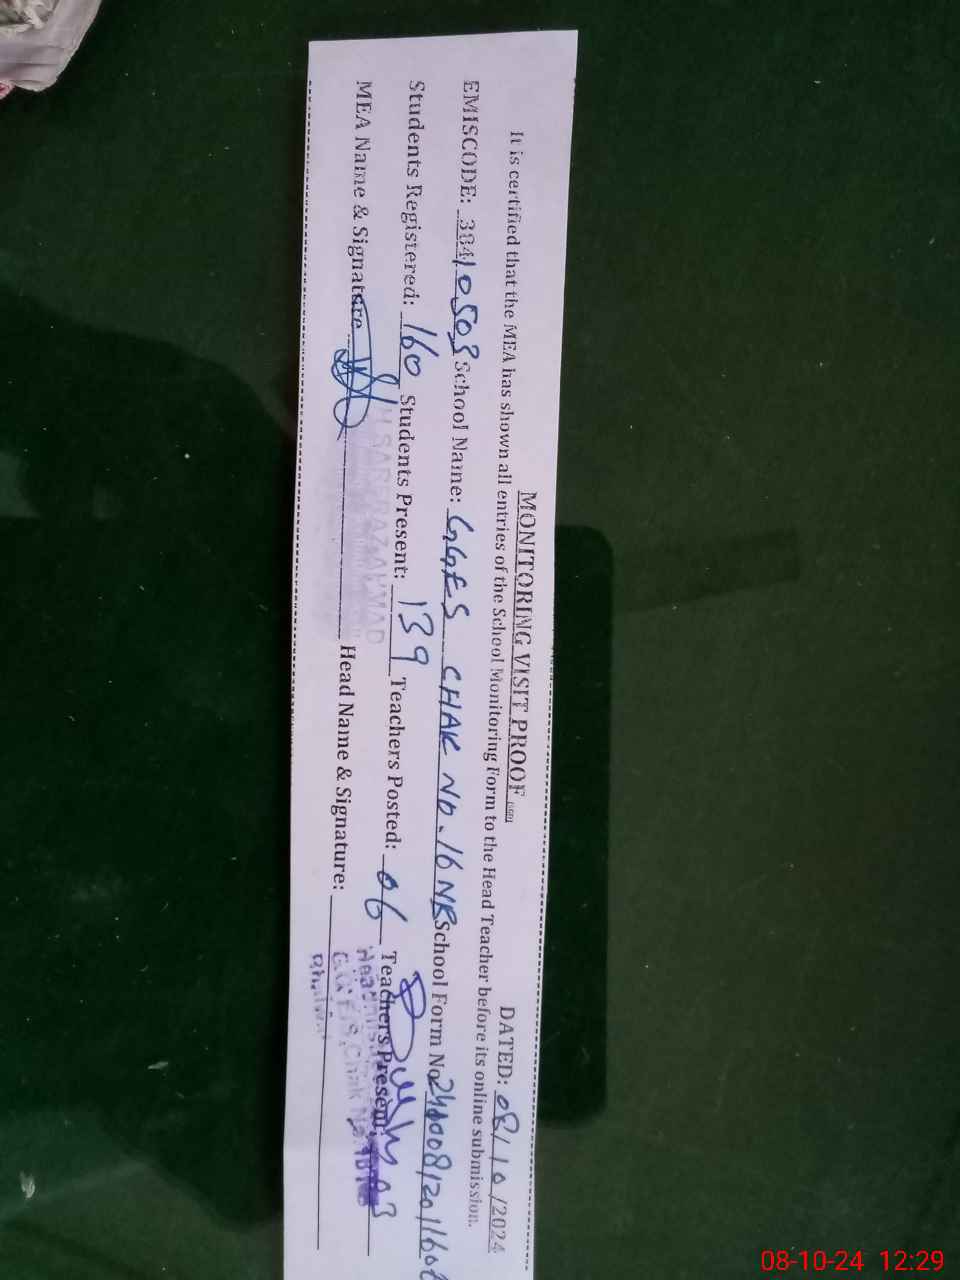 MONITORING VISIT PROOF
DATED: 08/10/2024
It is certified that the MEA has shown all entries of the School Monitoring Form to the Head Teacher before its online submission.
EMISCODE: 38410503 School Name: GGES CHAK NO.16 NB School Form No
Students Registered: 160 Students Present: 139 Teachers Posted: 06 Teachers Present: 03
MEA Name & Signature Head Name & Signature:
SARFRAZ AHMAD
G.G.E/S, Chak No. 16
Bhalwal
08-10-24 12:29